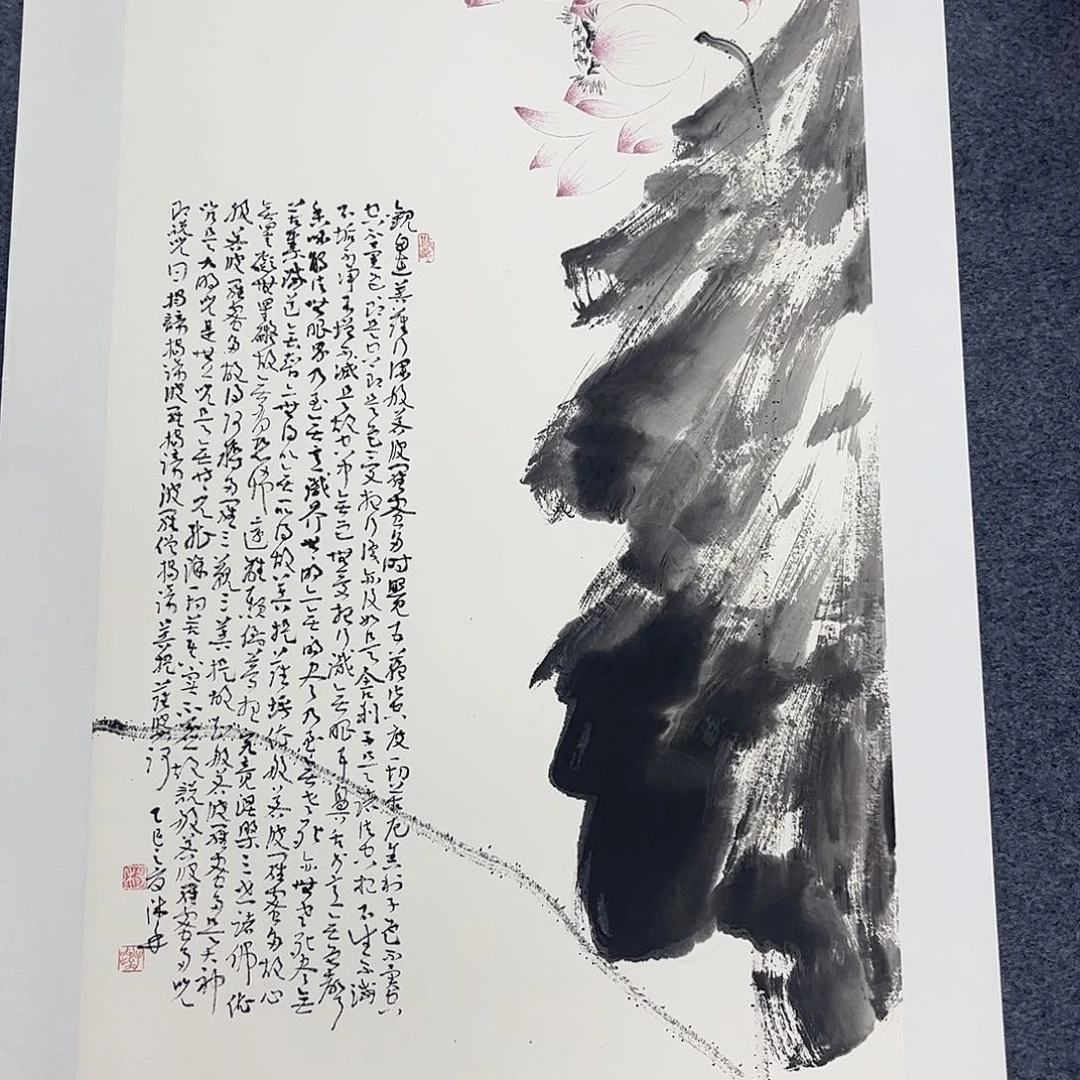 觀自在菩薩行深般若波羅蜜多時照見五蘊皆空度一切苦厄舍利子色不異空
空不異色色即是空空即是色受想行識亦復如是舍利子是諸法空相不生不滅
不垢不淨不增不減是故空中無色無受想行識無眼耳鼻舌身意無色聲
香味觸法無眼界乃至無意識界無無明亦無無明盡乃至無老死亦無老死盡無
苦集滅道無智亦無得以無所得故菩提薩埵依般若波羅蜜多故心
無罣礙無罣礙故無有恐怖遠離顛倒夢想究竟涅槃三世諸佛依
般若波羅蜜多故得阿耨多羅三藐三菩提故知般若波羅蜜多是大神
咒是大明咒是無上咒是無等等咒能除一切苦真實不虛故說般若波羅蜜多咒
即說咒曰揭諦揭諦波羅揭諦波羅僧揭諦菩提薩婆訶 乙巳之